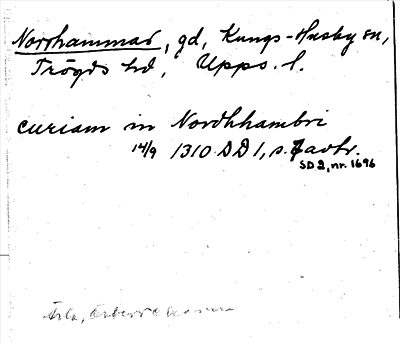 Norrhammar, gd, Kungs-Husby sn,
Trögds hd, Upps. l.
curiam in Nordhhambri
14/9 1310 DD 1, s. avtr.
SD 2, nr. 1696